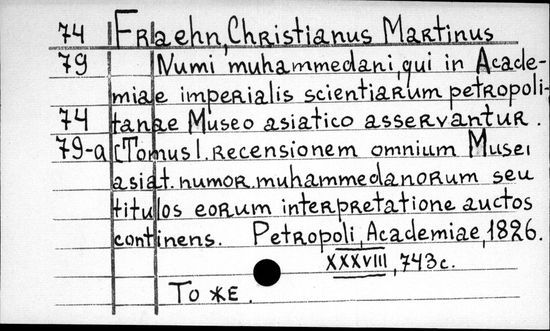 74 Fraehn, Christianus Martinus
79 Numi muhammedani, qui in Acade-
miae imperialis scientiarum petropoli-
74 tanae Museo asiatico asservantur.
79-a [Tomus I. recensionem omnium Musei
asiat. numor. muhammedanorum seu
titulos eorum interpretatione auctos
continens. Petropoli, Academiae, 1826.
XXXVIII, 743 с.
То же.